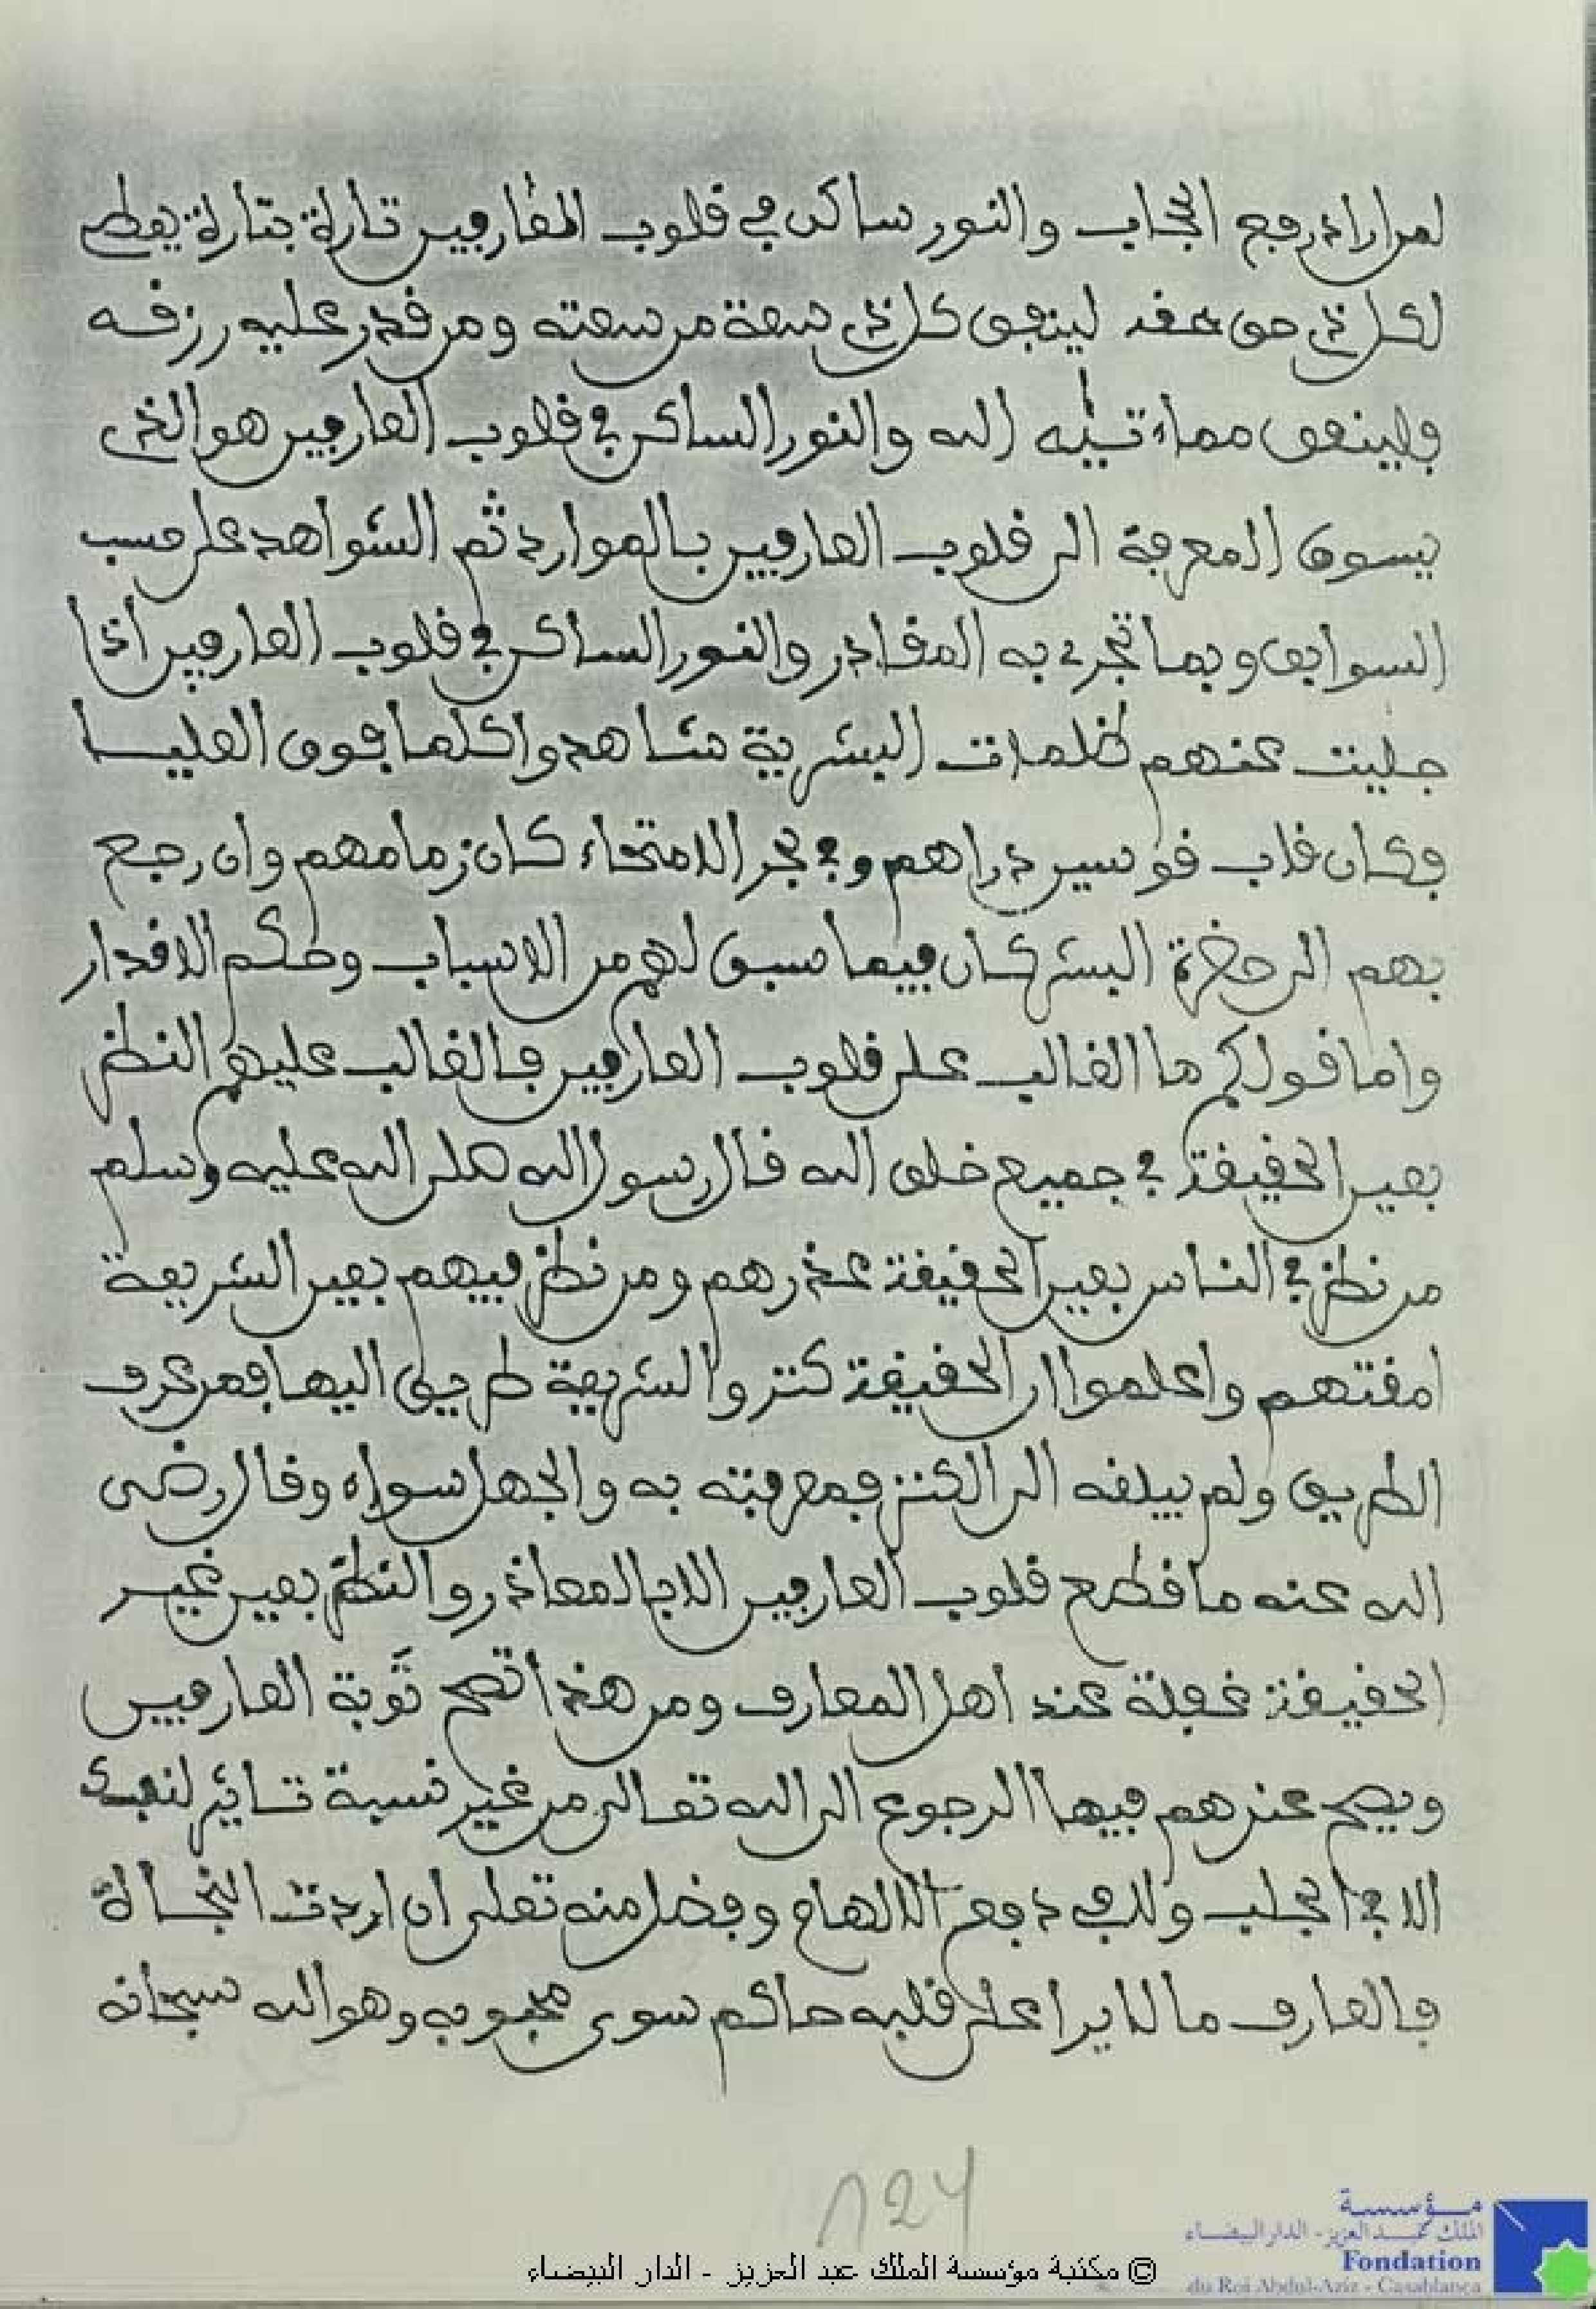 لمن اراد رفع الحجاب والنور ساكن في قلوب العارفين تارة بتارة يعطي
لكل ذي حق حقه لينفق كل ذي سعة من سعته ومن قدر عليه رزقه
فلينفق مما ءاتيه الله والنور الساكن في قلوب العارفين هو الذي
يسوق المعرفة الى قلوب العارفين بالموارد ثم الشواهد على حسب
السوابق وبما تجري به المقادر والنور الساكن في قلوب العارفين اذا
جليت عنهم ظلمات البشرية شاهدوا كلما فوق العليا
فكان قاب قوسين دراهم وفي بحر الامتحاء كان زمامهم وان رجع
بهم الى حضرة البشر كان فيما سبق لهم من الاسباب وحكم الاقدار
واما قولكم ما الغالب على قلوب العارفين فالغالب عليهم النظر
بعين الحقيقة في جميع خلق الله قال رسول الله صلى الله عليه وسلم
من نظر في الناس بعين الحقيقة عذرهم ومن نظر فيهم بعين الشريعة
امقتهم واعلموا ان الحقيقة كنز والشريعة طريق اليها فمن عرف
الطريق ولم يبلغه الى الكنز فمعرفته به والجهل سواء وقال رضى
الله عنه ما قطع قلوب العارفين الا بالمعاذر والنظر بعين غير
الحقيقة غفلة عند اهل المعارف ومن هذا تصح توبة العارفين
ويصح عندهم فيها الرجوع الى الله تعالى من غير نسبة تاثير لنفسك
لا في الجلب ولا في دفع الا الهام وفضل منه تعلى ان اردت النجاة
فالعارف ما لا يرا على قلبه حاكم سوى محبوبه وهو الله سبحانه
124
مؤسسة
الملك عبد العزيز - الدار البيضاء
Fondation
du Roi Abdul-Aziz - Casablanca
© مكتبة مؤسسة الملك عبد العزيز - الدار البيضاء